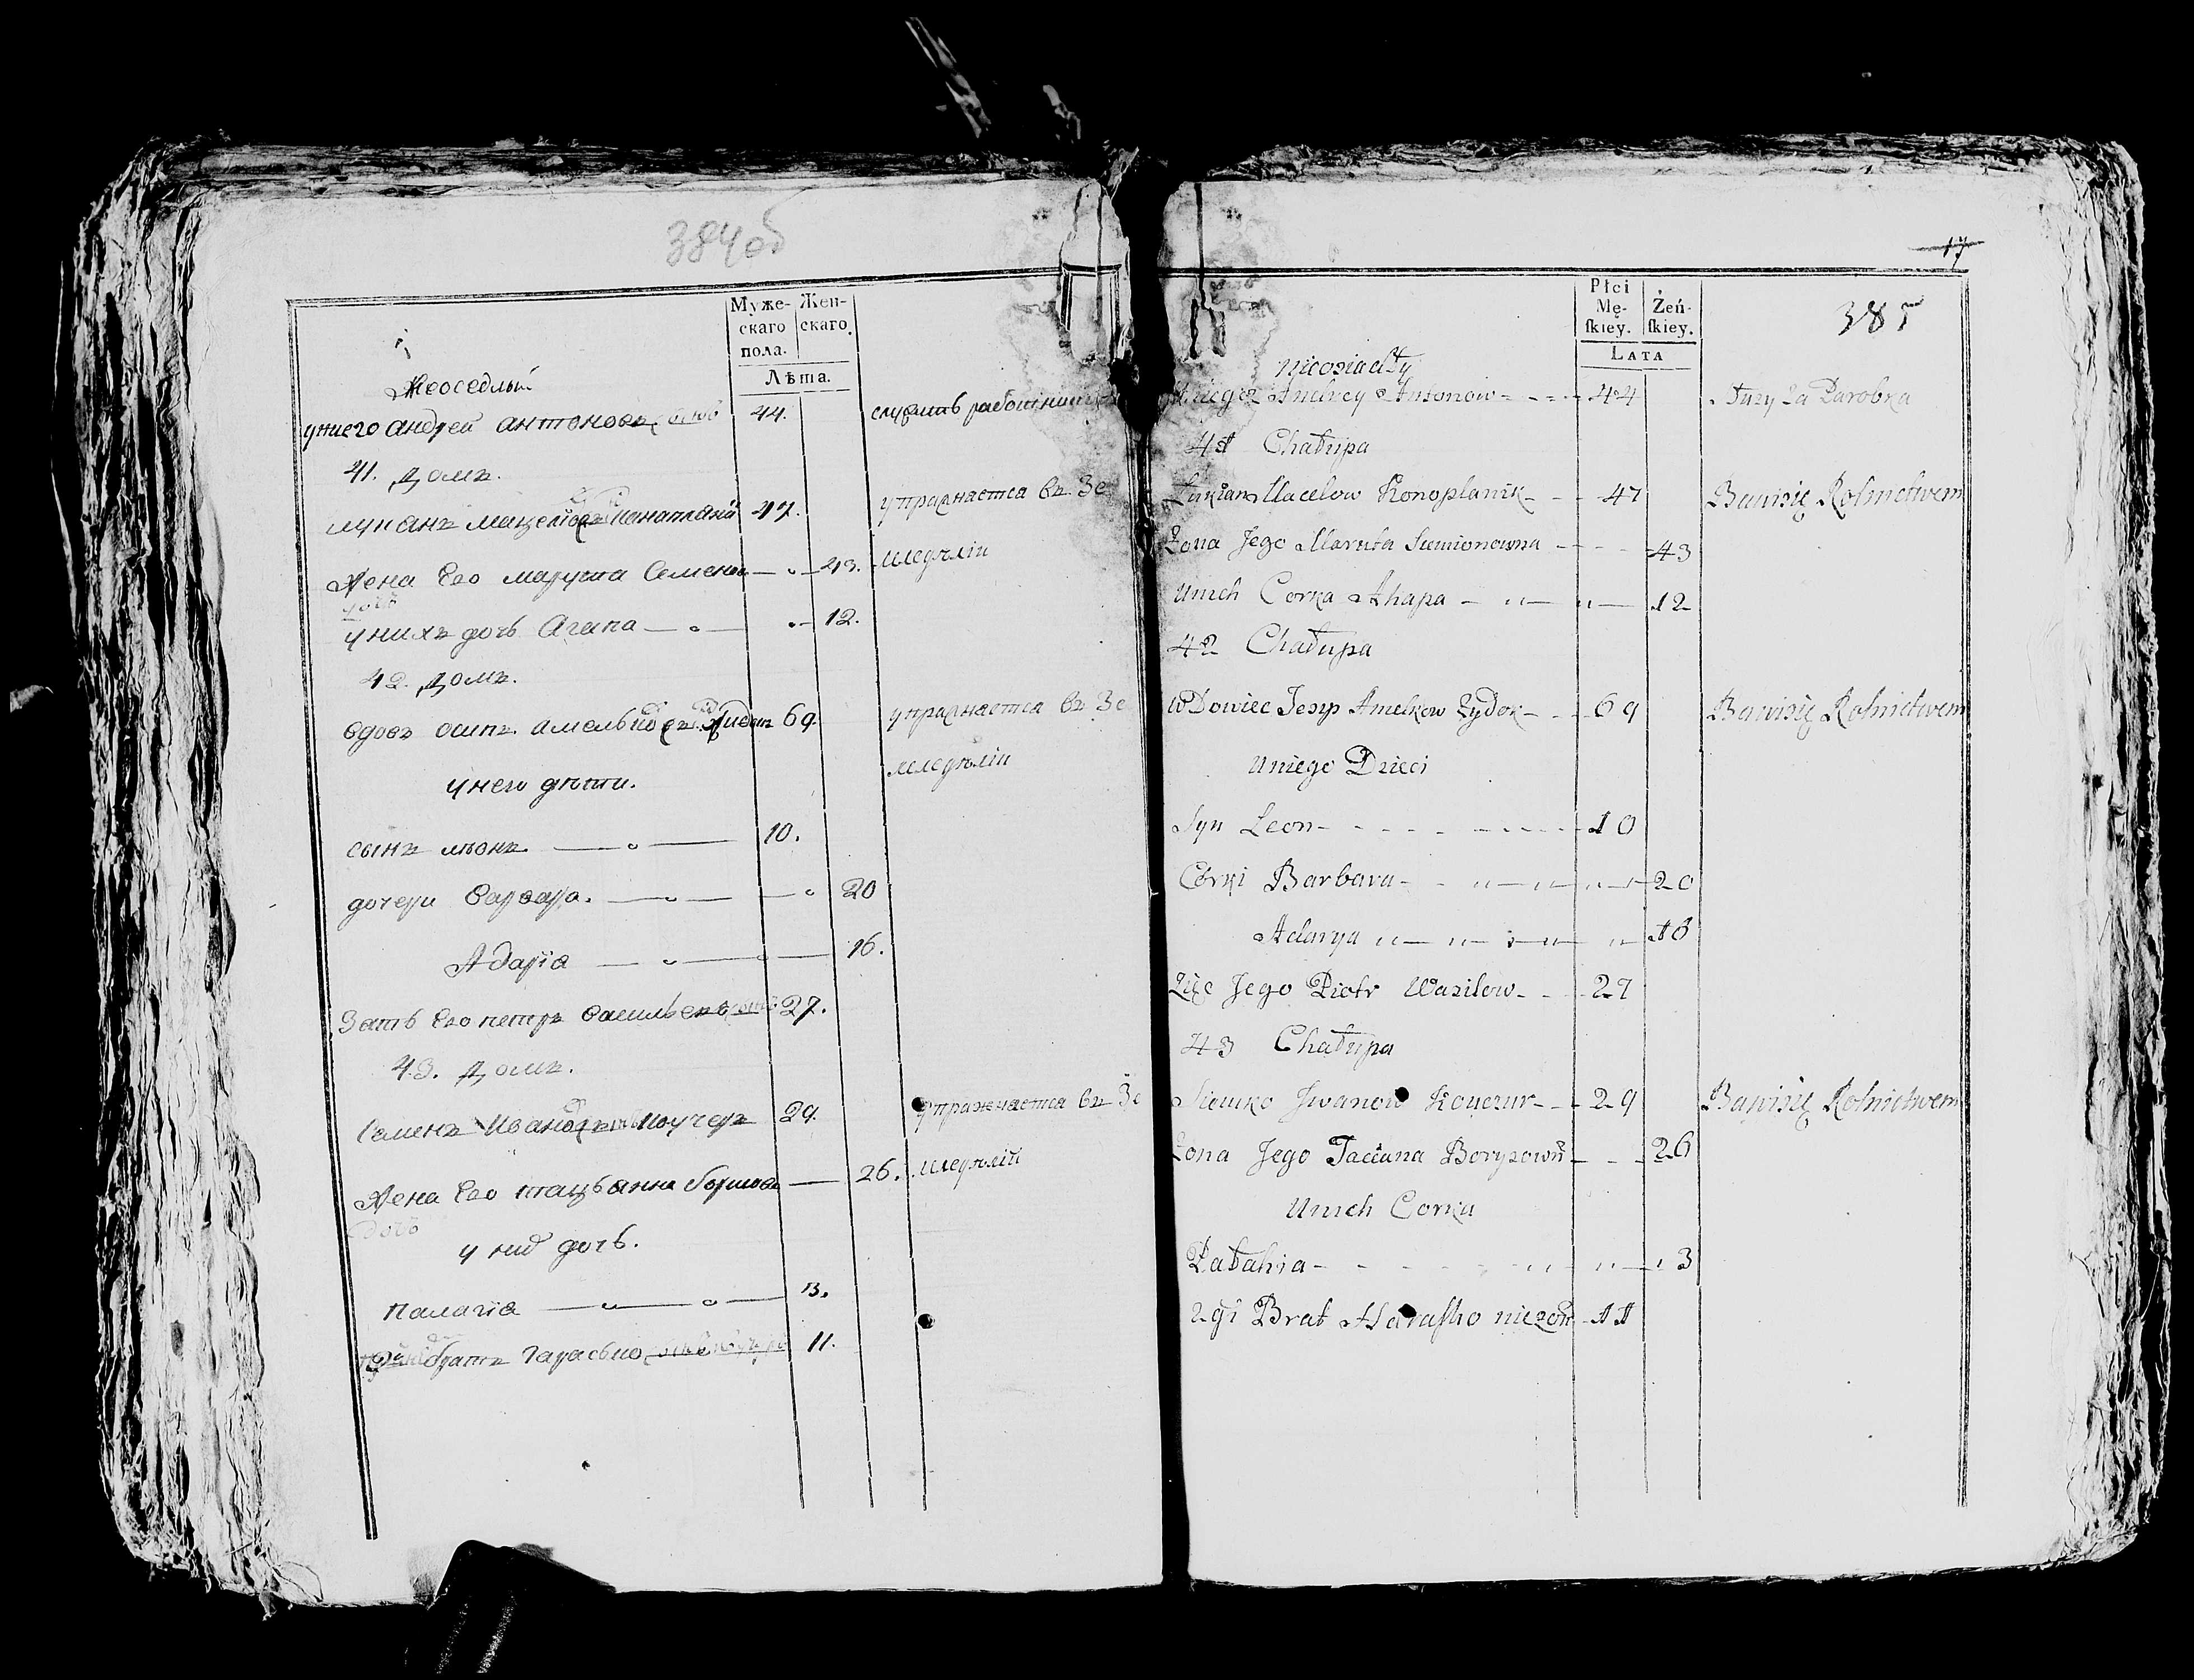 384 об
Муже-
скаго
пола.
Жен-
скаго.
Лѣта.
Неоседлый
унего андрей антоновъ 44. служитъ работникомъ
41. домъ.
лукянъ мацеловъ канаплякъ 47. упражняется въ Зе
Жена Его маруша Семенова 43. мледѣліи
унихъ дочь Агапа 12.
42. домъ.
вдовъ осипъ амельковъ Жидокъ 69. упражняется въ Зе
унего дѣти. мледѣліи
сынъ леонъ 10.
дочери варвара. 20
Адарія 16.
Зять Его петръ васильевъ 27.
43. домъ.
Семенъ Ивановъ коучеръ 29. упражняется въ Зе
Жена Его тацьанна борисова 26. мледѣлій
дочь
у них дочь.
палагія 3.
братъ гарасько 11.
17
385
Płci
Mę-
ſkiey.
Żeń-
ſkiey.
Lata
nieosiadły
Uniego Andrey Antonow 44 służy za Parobka
41 Chałupa
Łukian Macelow Konoplanik 47 Bawi się Rolnictwem
Zona Jego Maruta Siemionowna 43
Unich Corka Ahapa 12
42 Chałupa
Wdowiec Jesyp Amelkow Zydok 69 Bawi się Rolnictwem
Uniego Dzieci
Syn Leon 10
Córki Barbara 20
Adarya 16
Zięć Jego Piotr Wasilow 27
43 Chałupa
Siemko Jwanow Kouczur 29 Bawi się Rolnictwem
Zona Jego Tacianna Borysown 26
Unich Corka
Pałahia 3
2gi Brat Harasko nieżon 11